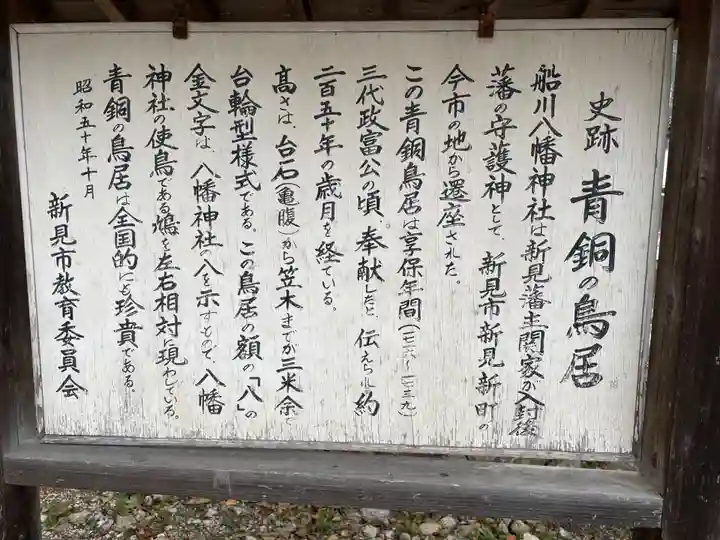 史跡 青銅の鳥居
船川八幡神社は新見藩主関家が入封後
藩の守護神として、新見市新見新町の
今市の地から遷座された。
この青銅鳥居は享保年間(一七一六~一七三九)
三代政富公の頃、奉献したと、伝えられ約
二百五十年の歳月を経ている。
高さは、台石(亀腹)から笠木までが三米余で
台輪型様式である。この鳥居の額の「八」の
金文字は、八幡神社の八を示すもので、八幡
神社の使鳥である鳩を左右相対に現わしている。
青銅の鳥居は全国的にも珍貴である。
昭和五十年十月
新見市教育委員会